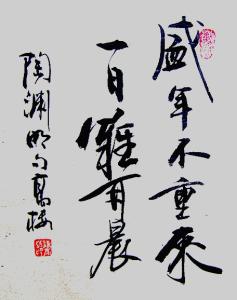 盛年不重來
一日難再晨
陶渊明句高棱